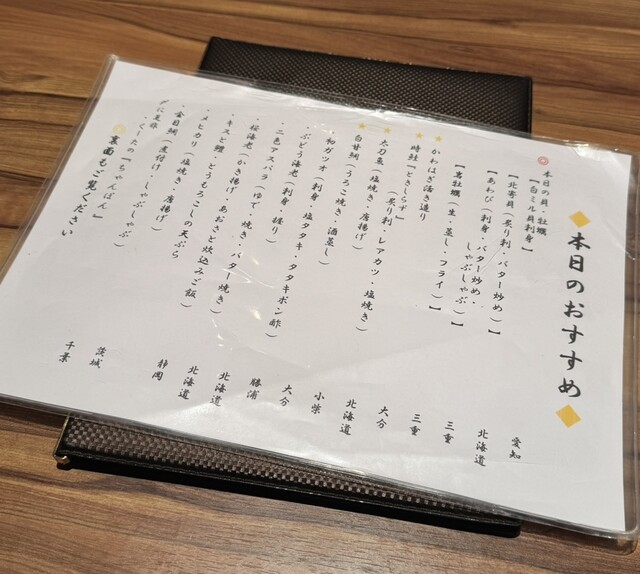 ◆本日のおすすめ◆
本日の貝・牡蠣
【白ミル貝刺身】 愛知
【北寄貝（炙り刺・バター炒め）】 北海道
【あわび（刺身・バター炒め・
しゃぶしゃぶ）】 三重
【岩牡蠣（生・蒸し・フライ）】 三重
★かわはぎ活き造り 大分
★時鮭『ときしらず』
（炙り刺・レアカツ・塩焼き） 北海道
★太刀魚（塩焼き・唐揚げ） 小柴
★白甘鯛（うろこ焼き・酒蒸し） 大分
・初ガツオ（刺身・塩タタキ・タタキポン酢） 勝浦
・ぶどう海老（刺身・握り） 北海道
・二色アスパラ（ゆで・焼き・バター焼き） 北海道
・桜海老（かき揚げ・あおさと炊込みご飯） 静岡
・キスと鱧・とうもろこしの天ぷら
・メヒカリ（塩焼き・唐揚げ） 茨城
・金目鯛（煮付け・しゃぶしゃぶ） 千葉
〆に是非
・くーたの『ちゃんぽん』
裏面もご覧ください